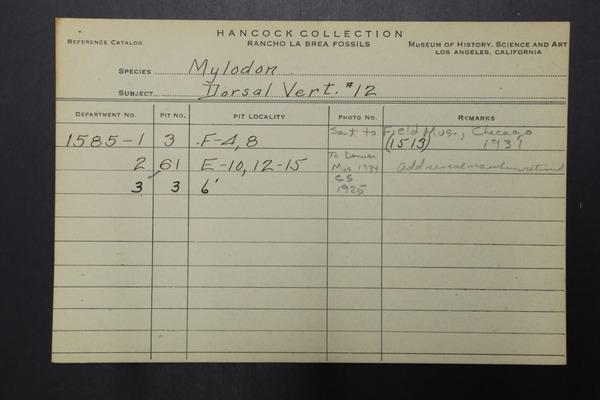 HANCOCK COLLECTION
REFERENCE CATALOG RANCHO LA BREA FOSSILS MUSEUM OF HISTORY, SCIENCE AND ART
LOS ANGELES, CALIFORNIA
SPECIES Mylodon
SUBJECT Dorsal Vert. #12
DEPARTMENT NO. PIT NO. PIT LOCALITY PHOTO NO. REMARKS
1585-1 3 F-4, 8 Sent to Field Mus., Chicago
(1513) 1931
2 61 E-10, 12-15 To Denver
Mus 1934 Add serial no when returned
3 3 6' CS
1925